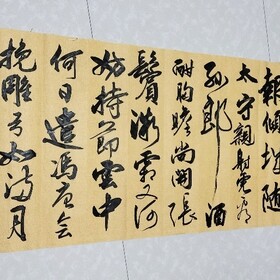 報傾城隨
太守親射虎看
孫郎酒
酣胸膽尚開張
鬢微霜又何
妨持節雲中
何日遣馮唐會
挽雕弓如滿月